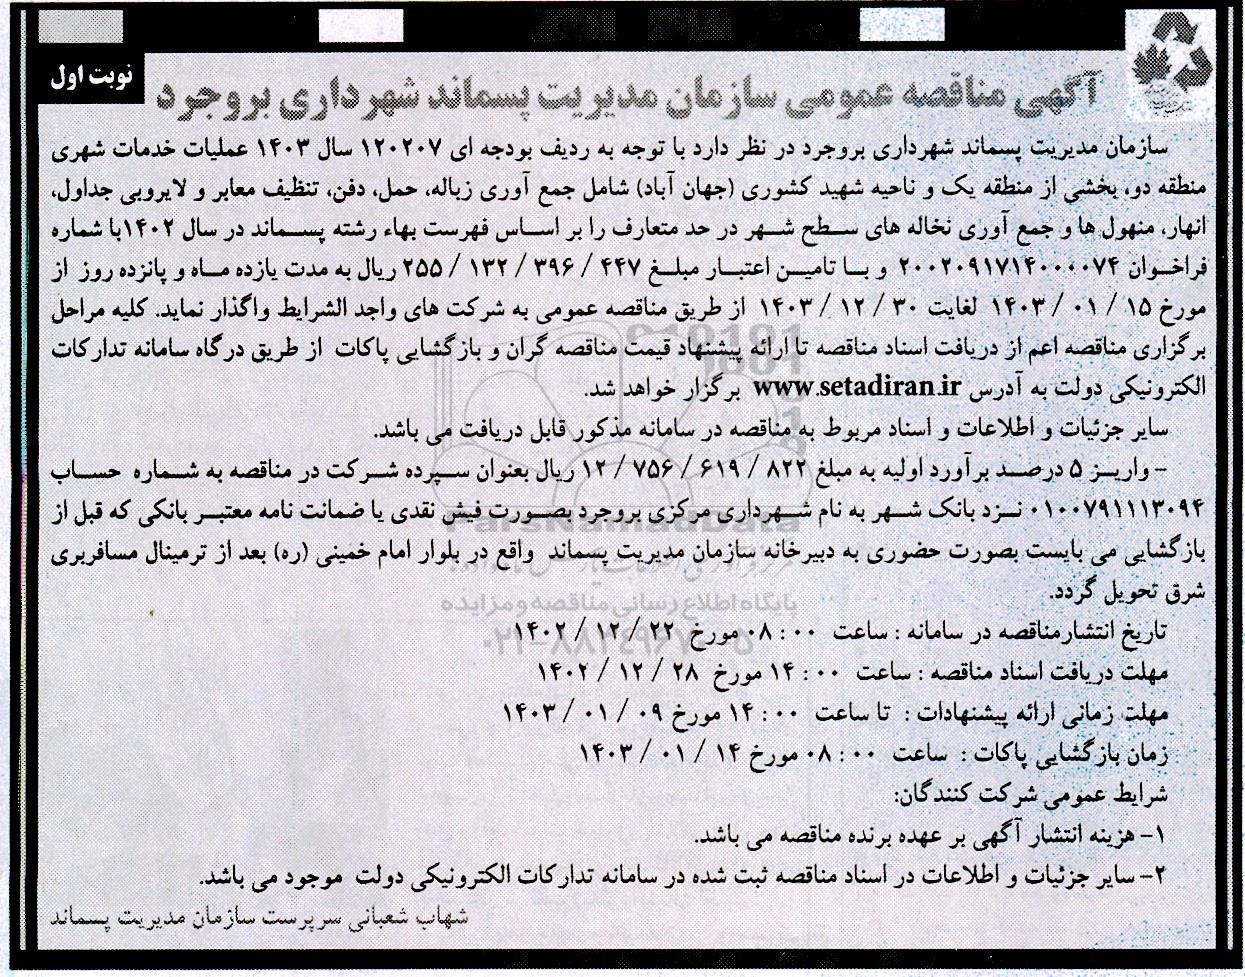 نوبت اول
آگهی مناقصه عمومی سازمان مدیریت پسماند شهرداری بروجرد
سازمان مدیریت پسماند شهرداری بروجرد در نظر دارد با توجه به ردیف بودجه ای ۱۲۰۲۰۷ سال ۱۴۰۳ عملیات خدمات شهری
منطقه دو، بخشی از منطقه یک و ناحیه شهید کشوری (جهان آباد) شامل جمع آوری زباله، حمل، دفن، تنظیف معابر و لایروبی جداول،
انهار، منهول ها و جمع آوری نخاله های سطح شهر در حد متعارف را بر اساس فهرست بهاء رشته پسماند در سال ۱۴۰۲با شماره
فراخوان ۲۰۰۲۰۹۱۷۱۴۰۰۰۰۷۴ و با تامین اعتبار مبلغ ۴۴۷ / ۳۹۶ / ۱۳۲ / ۲۵۵ ریال به مدت یازده ماه و پانزده روز از
مورخ ۱۵ / ۰۱ / ۱۴۰۳ لغایت ۳۰ / ۱۲ / ۱۴۰۳ از طریق مناقصه عمومی به شرکت های واجد الشرایط واگذار نماید. کلیه مراحل
برگزاری مناقصه اعم از دریافت اسناد مناقصه تا ارائه پیشنهاد قیمت مناقصه گران و بازگشایی پاکات از طریق درگاه سامانه تدارکات
الکترونیکی دولت به آدرس www.setadiran.ir برگزار خواهد شد.
سایر جزئیات و اطلاعات و اسناد مربوط به مناقصه در سامانه مذکور قابل دریافت می باشد.
- واریز ۵ درصد برآورد اولیه به مبلغ ۸۲۲ / ۶۱۹ / ۷۵۶ / ۱۲ ریال بعنوان سپرده شرکت در مناقصه به شماره حساب
۰۱۰۰۷۹۱۱۱۳۰۹۴ نزد بانک شهر به نام شهرداری مرکزی بروجرد بصورت فیش نقدی یا ضمانت نامه معتبر بانکی که قبل از
بازگشایی می بایست بصورت حضوری به دبیرخانه سازمان مدیریت پسماند واقع در بلوار امام خمینی (ره) بعد از ترمینال مسافربری
شرق تحویل گردد.
پایگاه اطلاع رسانی مناقصه و مزایده
تاریخ انتشارمناقصه در سامانه : ساعت ۰۰ : ۰۸ مورخ ۲۲ / ۱۲ / ۱۴۰۲
مهلت دریافت اسناد مناقصه : ساعت ۰۰ : ۱۴ مورخ ۲۸ / ۱۲ / ۱۴۰۲
مهلت زمانی ارائه پیشنهادات : تا ساعت ۰۰ : ۱۴ مورخ ۰۹ / ۰۱ / ۱۴۰۳
زمان بازگشایی پاکات : ساعت ۰۰ : ۰۸ مورخ ۱۴ / ۰۱ / ۱۴۰۳
شرایط عمومی شرکت کنندگان:
۱- هزینه انتشار آگهی بر عهده برنده مناقصه می باشد.
۲- سایر جزئیات و اطلاعات در اسناد مناقصه ثبت شده در سامانه تدارکات الکترونیکی دولت موجود می باشد.
شهاب شعبانی سرپرست سازمان مدیریت پسماند